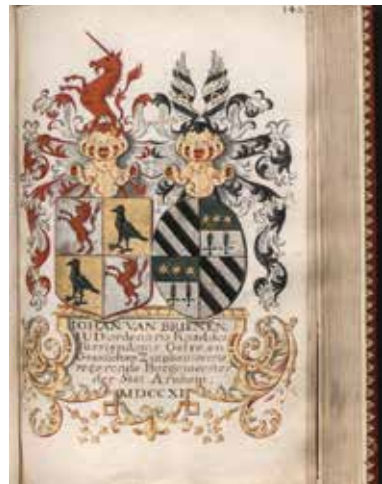 142
JOHAN VAN BRIENEN
J.U.D. ordenaris Raad des
Furstendoms Gelre en
Graafschap Zutphen
regerende Borgemeester
der Stat Arnhem.
MDCCXI